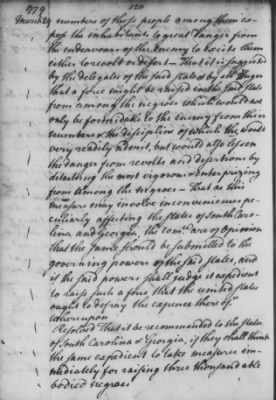 179
March 29 numbers of those people among them ex-
pose the inhabitants to great danger from
the endeavours of the enemy to excite them
either to revolt or desert — That it is suggested
by the delegates of the said state & by
that a force might be raised in the said state
from among the negroes which would not
only be formidable to the enemy from their
numbers & the discipline of which they would
very readily admit, but would also lessen
the danger from revolts and desertions by
detaching the most vigorous & enterprizing
from among the negroes — That as this
measure may involve inconveniences pe-
culiarly affecting the states of south Caro-
lina and Georgia, the comee. are of opinion
that the same should be submitted to the
governing powers of the said states, and
if the said powers shall judge it expedient
to raise such a force that the united states
ought to defray the expence thereof
whereupon
Resolved That it be recommended to the states
of South Carolina & Georgia, if they shall think
the same expedient to take measures im-
mediately for raising three thousand able
bodied negroes